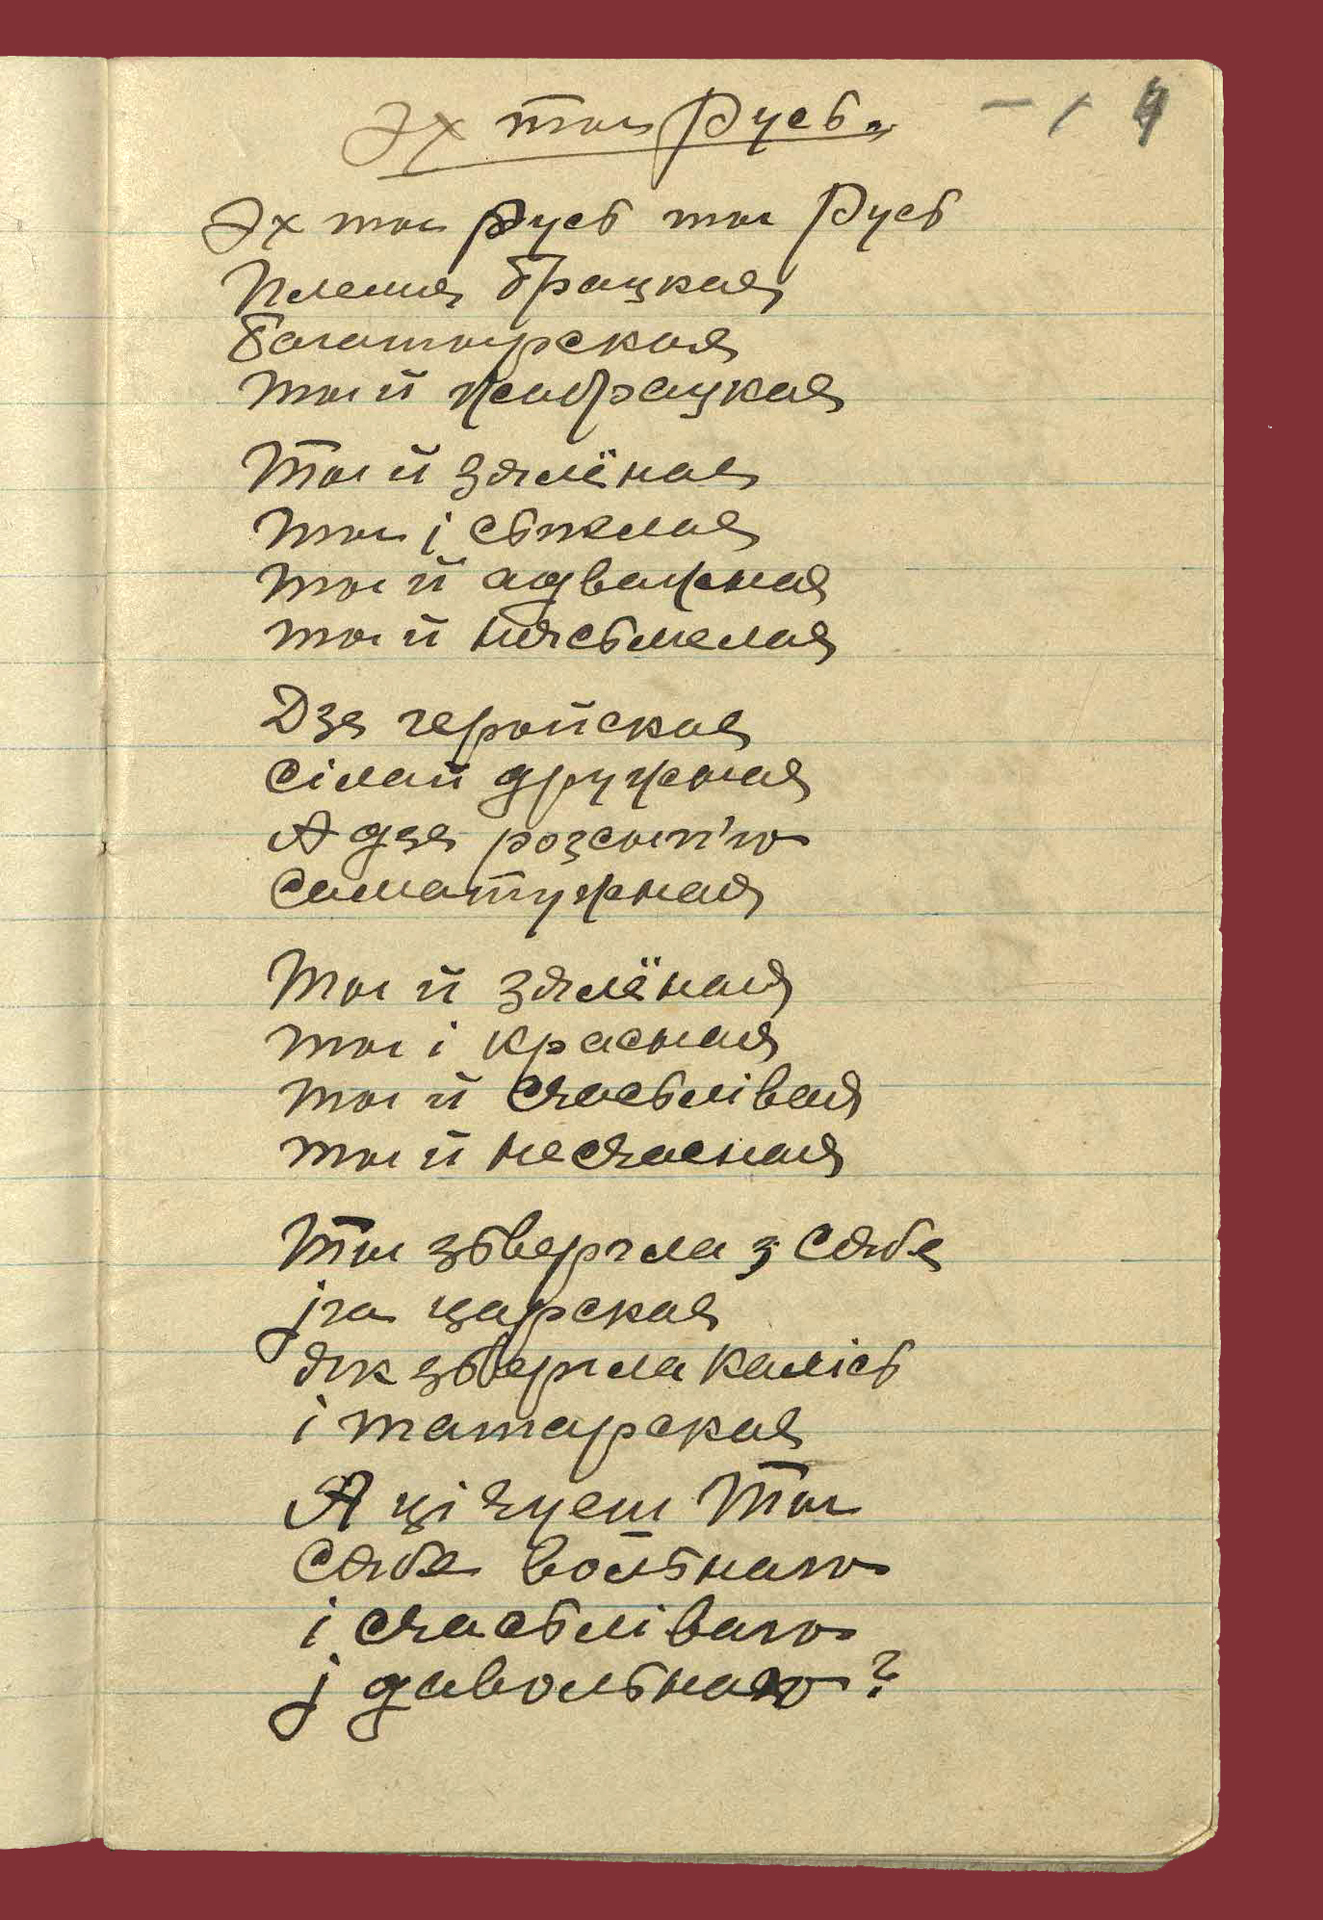 Эх ты Русь.
— / 4
Эх ты Русь ты Русь
Племя брацкая
Багатырская
ты й небрацкая
Ты й зялёная
ты і сьпелая
ты й адважная
ты й нясьмелая
Дзе геройская
сілай дружная
А дзе розсып'ю
саматужная
Ты й зялёная
ты і красная
ты й счасьлівая
ты й несчасная
Ты зьвергла з сябе
іга царская
як зьвергла калісь
і татарская
А ці чуеш Ты
сябе вольнаю
і счасьліваю
і давольнаю?